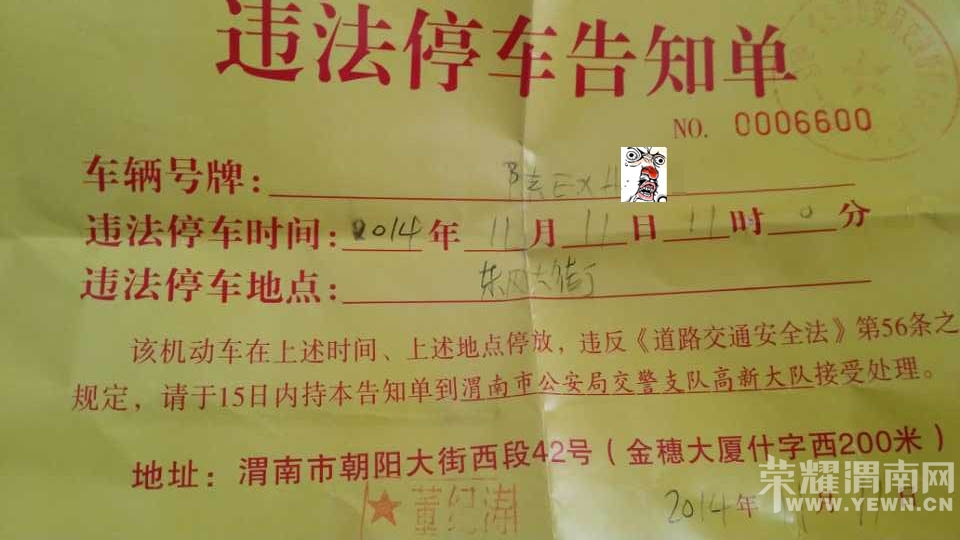 违法停车告知单
NO. 0006600
车辆号牌: 陕EX
违法停车时间: 2014年11月11日11时0分
违法停车地点: 东风大街
该机动车在上述时间、上述地点停放，违反《道路交通安全法》第56条之
规定，请于15日内持本告知单到渭南市公安局交警支队高新大队接受处理。
地址：渭南市朝阳大街西段42号（金穗大厦什字西200米）
董纪涛
2014年 月 日
荣耀渭南网
WWW.YEWN.CN